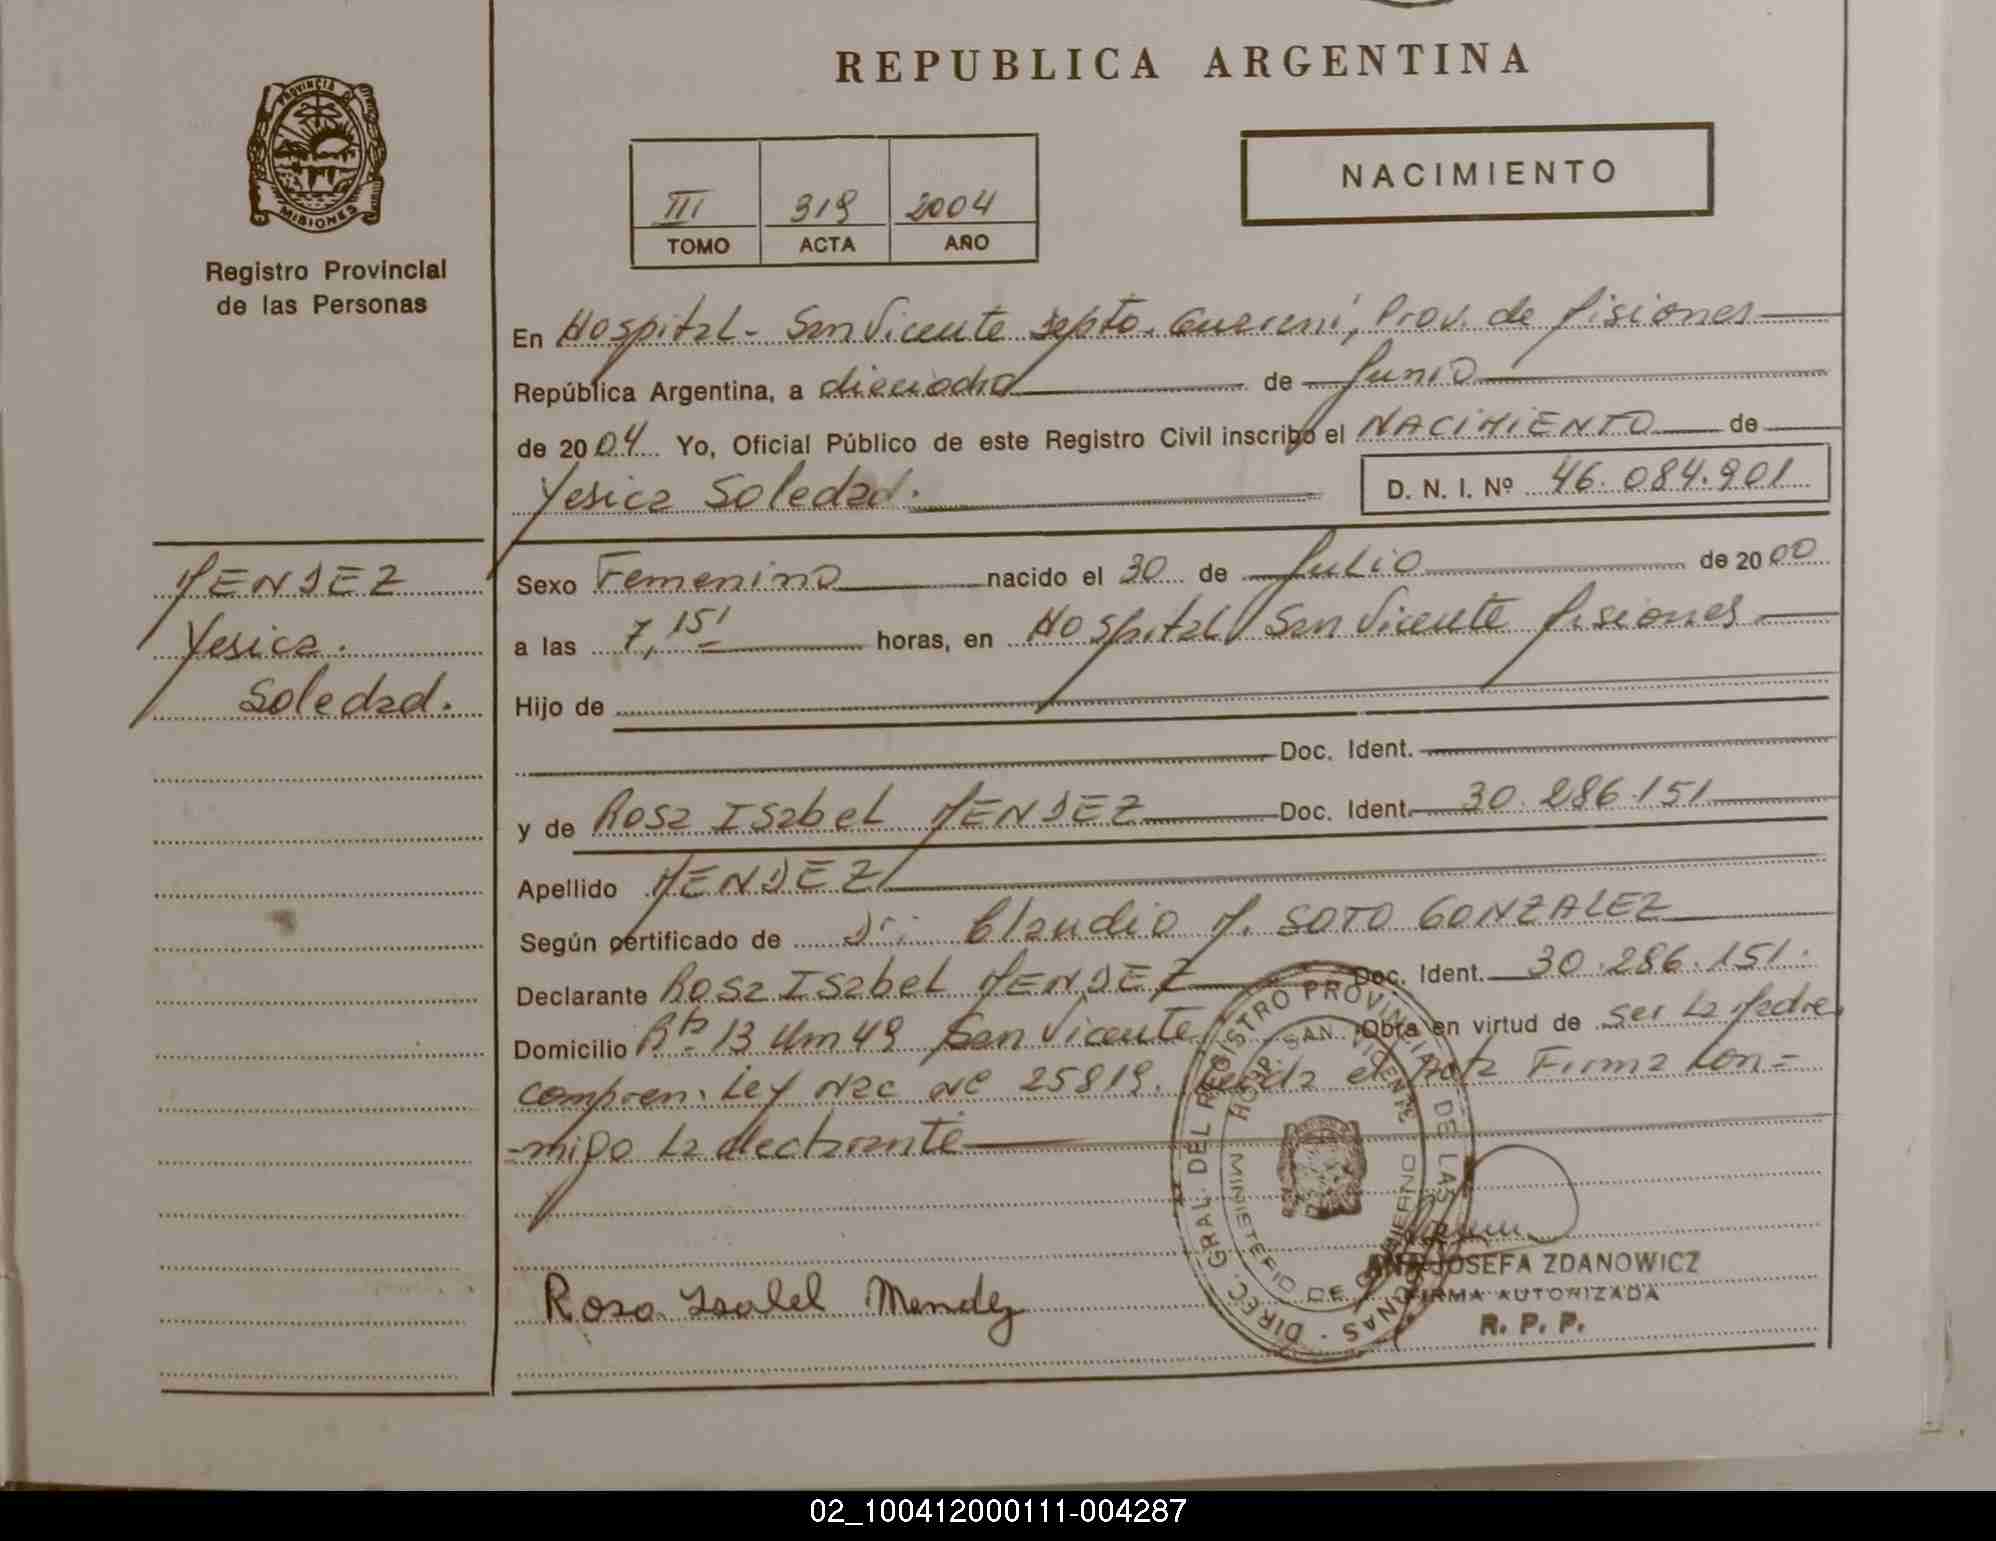 REPUBLICA ARGENTINA
PROVINCIA DE
MISIONES
Registro Provincial
de las Personas
III 319 2004
TOMO ACTA AÑO
NACIMIENTO
En Hospital - San Vicente Depto. Guaraní, Prov. de Misiones
República Argentina, a dieciocho de Junio
de 2004 Yo, Oficial Público de este Registro Civil inscribo el NACIMIENTO de
Yesica Soledad.
D. N. I. Nº 46.084.901
MENDEZ
Yesica.
Soledad.
Sexo Femenino nacido el 30 de Julio de 2000
a las 7,15' horas, en Hospital San Vicente Misiones
Hijo de
Doc. Ident.
y de Rosa Isabel MENDEZ Doc. Ident. 30.286.151
Apellido MENDEZ
Según certificado de Dr: Claudio M. SOTO GONZALEZ
Declarante Rosa Isabel MENDEZ Doc. Ident. 30.286.151.
Domicilio Rta 13 Km 49 San Vicente Obra en virtud de ser la Madre
compren. Ley Nac Nº 25819. Leída el Acta Firma con=
-migo la declarante
DIREC. GRAL. DEL REGISTRO PROVINCIAL DE LAS PERSONAS
HOSP. SAN VICENTE
MINISTERIO DE GOBIERNO
Rosa Isabel Mendez
ANA JOSEFA ZDANOWICZ
FIRMA AUTORIZADA
R. P. P.
02_100412000111-004287